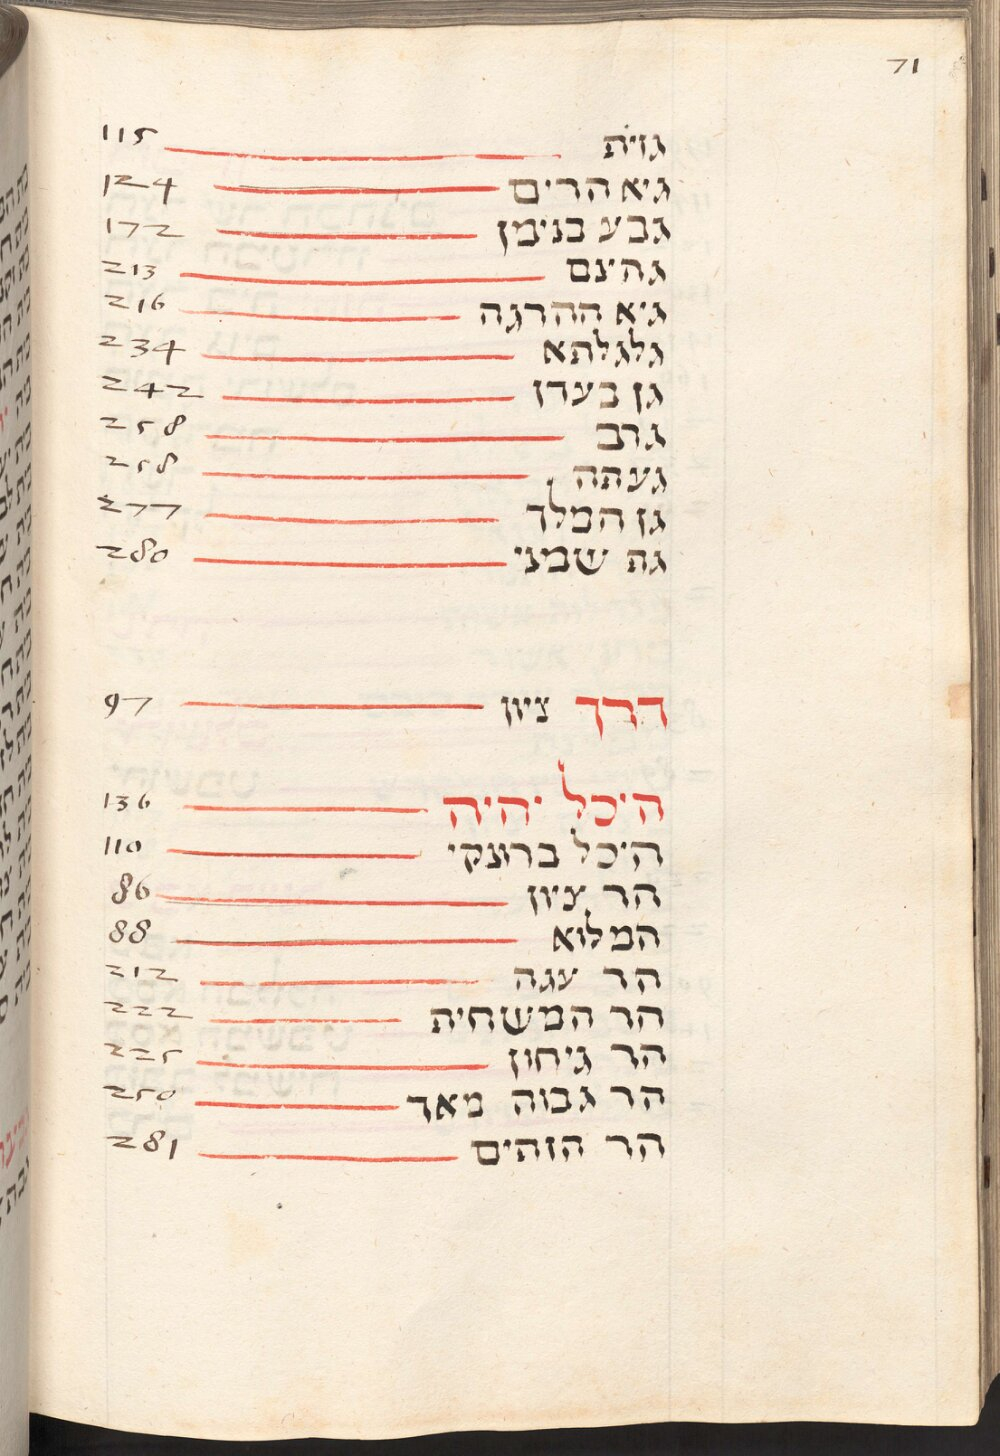 71
גזית 115
גיא הרים 124
גבע בנימן 172
גהינם 213
גיא ההרגה 216
גלגלתא 234
גן בעדן 242
גרב 258
געתה 258
גן המלך 277
גת שמני 280
דרך ציון 97
היכל יהיה 136
היכל ברוצקי 110
הר ציון 86
המלוא 88
הר ענה 212
הר המשחית 222
הר גיחון 225
הר גבוה מאד 250
הר הזהים 281